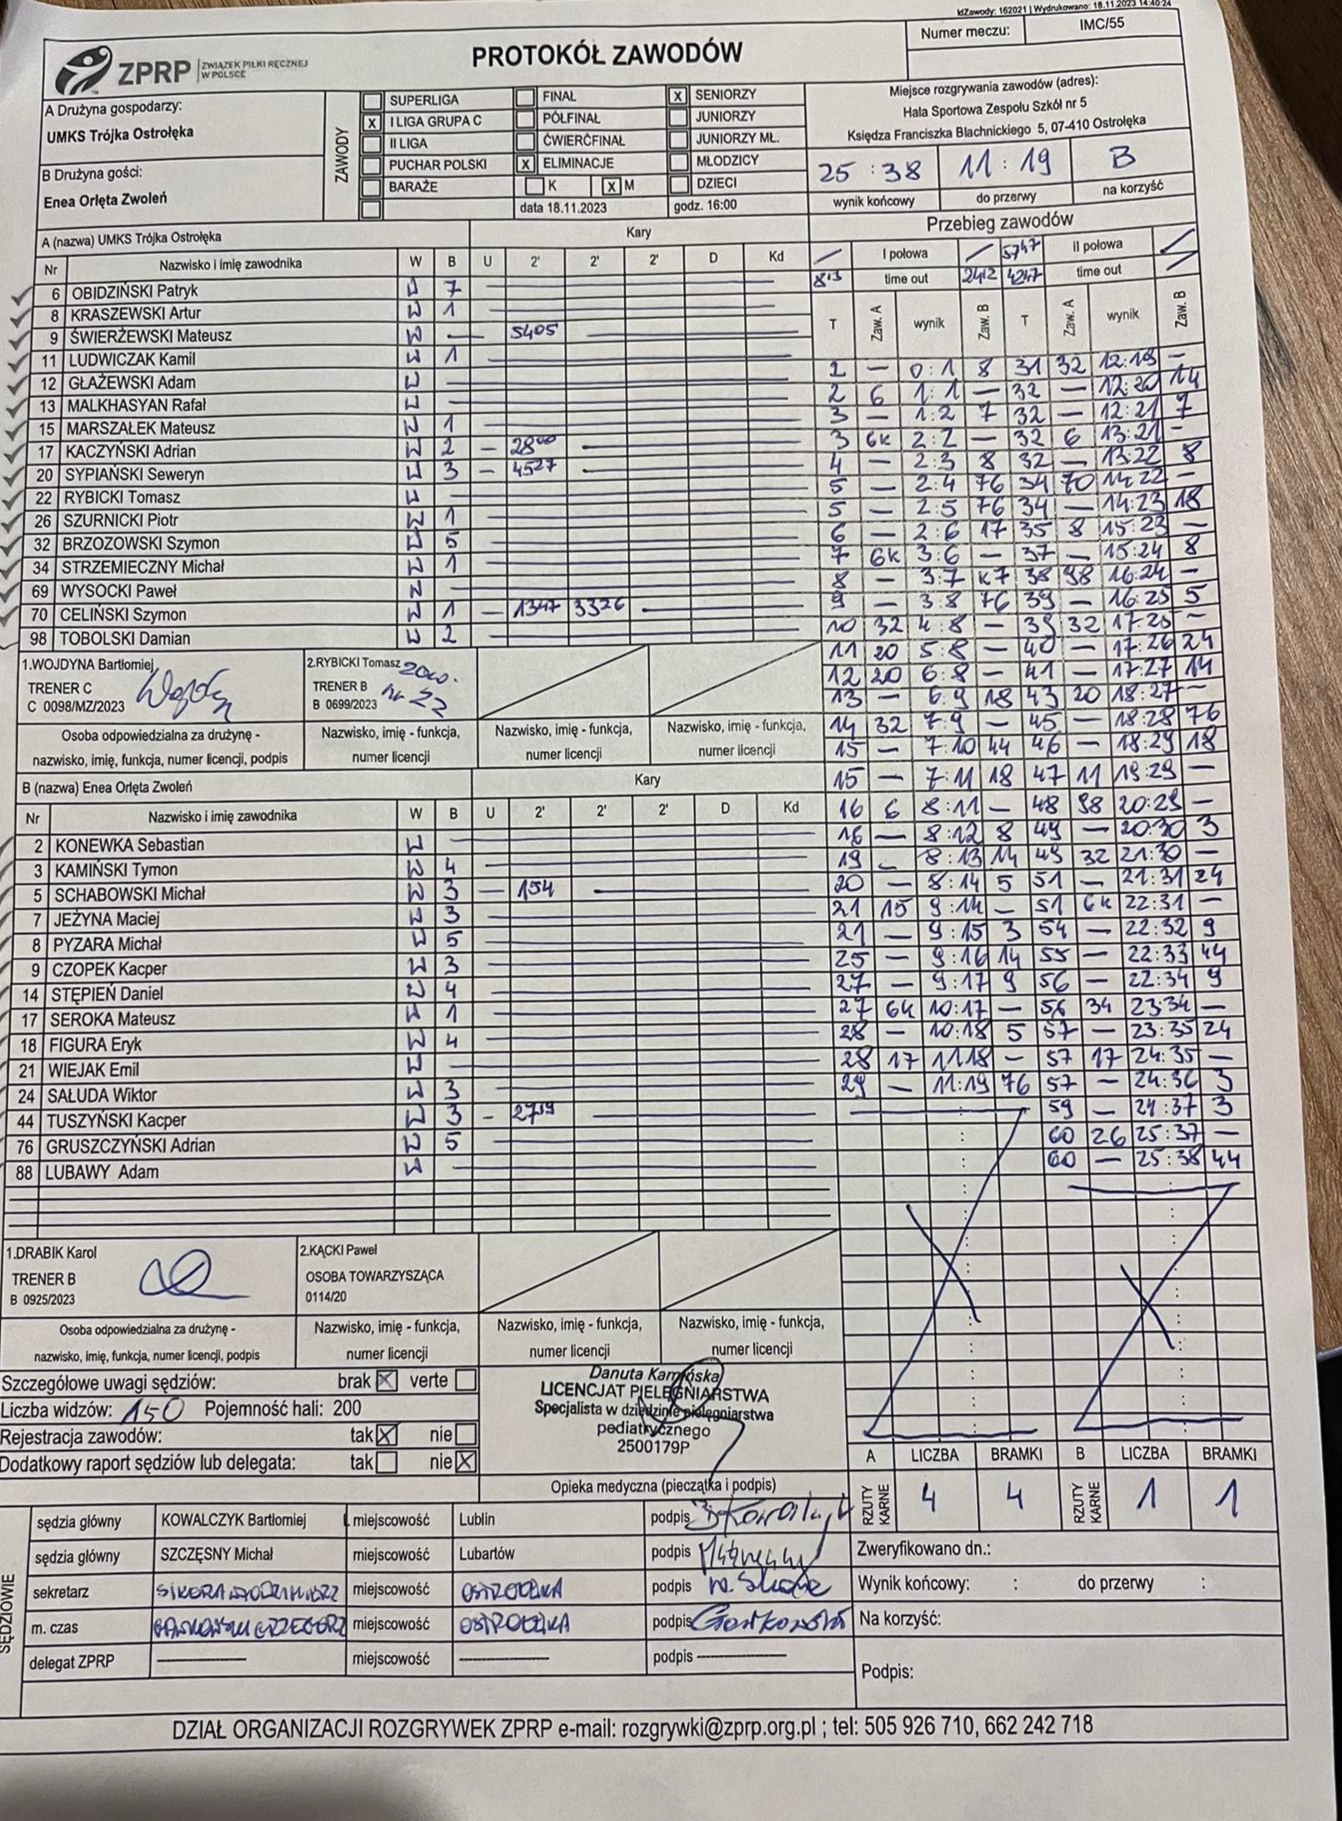 IdZawody: 162021 | Wydrukowano: 18.11.2023 14:40:24
Numer meczu: IMC/55
ZPRP ZWIĄZEK PIŁKI RĘCZNEJ W POLSCE
PROTOKÓŁ ZAWODÓW
A Drużyna gospodarzy:
UMKS Trójka Ostrołęka
B Drużyna gości:
Enea Orlęta Zwoleń
ZAWODY
SUPERLIGA FINAŁ X SENIORZY
X I LIGA GRUPA C PÓŁFINAŁ JUNIORZY
II LIGA ĆWIERĆFINAŁ JUNIORZY MŁ.
PUCHAR POLSKI X ELIMINACJE MŁODZICY
BARAŻE K X M DZIECI
data 18.11.2023 godz. 16:00
Miejsce rozgrywania zawodów (adres):
Hala Sportowa Zespołu Szkół nr 5
Księdza Franciszka Blachnickiego 5, 07-410 Ostrołęka
25 : 38 11 : 19 B
wynik końcowy do przerwy na korzyść
Przebieg zawodów
I połowa 5747 II połowa
813 time out 2412 4247 time out
T Zaw. A wynik Zaw. B T Zaw. A wynik Zaw. B
A (nazwa) UMKS Trójka Ostrołęka Kary
Nr Nazwisko i imię zawodnika W B U 2' 2' 2' D Kd
6 OBIDZIŃSKI Patryk W 7
8 KRASZEWSKI Artur W 1
9 ŚWIERŻEWSKI Mateusz W — 5405
11 LUDWICZAK Kamil W 1
12 GŁAŻEWSKI Adam W
13 MALKHASYAN Rafał W
15 MARSZAŁEK Mateusz W 1
17 KACZYŃSKI Adrian W 2 - 2800
20 SYPIAŃSKI Seweryn W 3 - 4527
22 RYBICKI Tomasz W
26 SZURNICKI Piotr W 1
32 BRZOZOWSKI Szymon W 5
34 STRZEMIECZNY Michał W 1
69 WYSOCKI Paweł W
70 CELIŃSKI Szymon W 1 - 1347 3326
98 TOBOLSKI Damian W 2
2 — 0:1 8 31 32 12:19 —
2 6 1:1 — 32 — 12:20 14
3 — 1:2 7 32 — 12:21 7
3 6k 2:2 — 32 6 13:21 —
4 — 2:3 8 32 — 13:22 8
5 — 2:4 76 34 70 14:22 —
5 — 2:5 76 34 — 14:23 18
6 — 2:6 17 35 8 15:23 —
7 6k 3:6 — 37 — 15:24 8
8 — 3:7 k7 38 98 16:24 —
9 — 3:8 76 39 — 16:25 5
10 32 4:8 — 39 32 17:25 —
11 20 5:8 — 40 — 17:26 24
12 20 6:8 — 41 — 17:27 14
13 — 6:9 18 43 20 18:27 —
14 32 7:9 — 45 — 18:28 76
15 — 7:10 44 46 — 18:29 18
15 — 7:11 18 47 11 19:29 —
16 6 8:11 — 48 98 20:29 —
16 — 8:12 8 49 — 20:30 3
19 — 8:13 14 49 32 21:30 —
20 — 8:14 5 51 — 21:31 24
21 15 9:14 — 51 6k 22:31 —
21 — 9:15 3 54 — 22:32 9
25 — 9:16 14 55 — 22:33 44
27 — 9:17 9 56 — 22:34 9
27 6k 10:17 — 56 34 23:34 —
28 — 10:18 5 57 — 23:35 24
28 17 11:18 — 57 17 24:35 —
29 — 11:19 76 57 — 24:36 3
59 — 24:37 3
60 26 25:37 —
60 — 25:38 44
1.WOJDYNA Bartłomiej
TRENER C
C 0098/MZ/2023
2.RYBICKI Tomasz
TRENER B nr 22
B 0699/2023
Osoba odpowiedzialna za drużynę - nazwisko, imię, funkcja, numer licencji, podpis
Nazwisko, imię - funkcja, numer licencji
Nazwisko, imię - funkcja, numer licencji
Nazwisko, imię - funkcja, numer licencji
B (nazwa) Enea Orlęta Zwoleń Kary
Nr Nazwisko i imię zawodnika W B U 2' 2' 2' D Kd
2 KONEWKA Sebastian W
3 KAMIŃSKI Tymon W 4
5 SCHABOWSKI Michał W 3 - 154
7 JEŻYNA Maciej W 3
8 PYZARA Michał W 5
9 CZOPEK Kacper W 3
14 STĘPIEŃ Daniel W 4
17 SEROKA Mateusz W 1
18 FIGURA Eryk W 4
21 WIEJAK Emil W
24 SAŁUDA Wiktor W 3
44 TUSZYŃSKI Kacper W 3 - 2719
76 GRUSZCZYŃSKI Adrian W 5
88 LUBAWY Adam W
1.DRABIK Karol
TRENER B
B 0925/2023
2.KĄCKI Paweł
OSOBA TOWARZYSZĄCA
0114/20
Osoba odpowiedzialna za drużynę - nazwisko, imię, funkcja, numer licencji, podpis
Nazwisko, imię - funkcja, numer licencji
Nazwisko, imię - funkcja, numer licencji
Nazwisko, imię - funkcja, numer licencji
Szczegółowe uwagi sędziów: brak X verte
Liczba widzów: 150 Pojemność hali: 200
Rejestracja zawodów: tak X nie
Dodatkowy raport sędziów lub delegata: tak nie X
Danuta Kamińska
LICENCJAT PIELĘGNIARSTWA
Specjalista w dziedzinie pielęgniarstwa
pediatrycznego
2500179P
Opieka medyczna (pieczątka i podpis)
A LICZBA BRAMKI B LICZBA BRAMKI
RZUTY KARNE 4 4 RZUTY KARNE 1 1
SĘDZIOWIE
sędzia główny KOWALCZYK Bartłomiej miejscowość Lublin podpis
sędzia główny SZCZĘSNY Michał miejscowość Lubartów podpis
sekretarz SIKORA WŁODZIMIERZ miejscowość OSTROŁĘKA podpis
m. czas GRZEGORZ miejscowość OSTROŁĘKA podpis
delegat ZPRP miejscowość podpis
Zweryfikowano dn.:
Wynik końcowy: : do przerwy :
Na korzyść:
Podpis:
DZIAŁ ORGANIZACJI ROZGRYWEK ZPRP e-mail: rozgrywki@zprp.org.pl ; tel: 505 926 710, 662 242 718